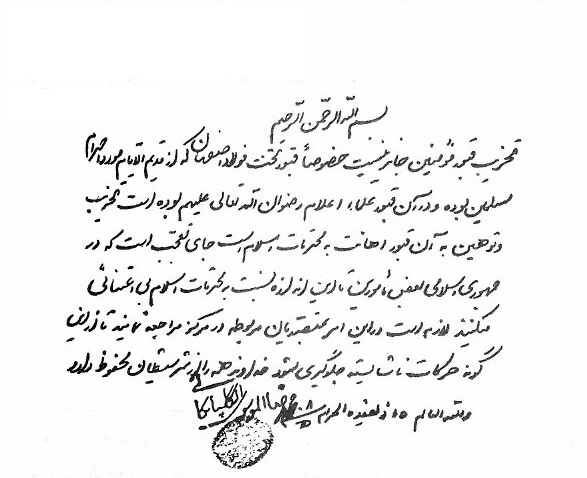 بسم الله الرحمن الرحیم
تخریب قبور مؤمنین جایز نیست خصوصاً قبور تخت فولاد اصفهان که از قدیم الایام مورد احترام
مسلمین بوده و در آن قبور علماء اعلام رضوان الله تعالی علیهم بوده است تخریب
و توهین به آن قبور اهانت به محترمات اسلام است جای تعجب است که در
جمهوری اسلامی بعض مأمورین تا این اندازه نسبت به محترمات اسلام بی اعتنائی
میکنند لازم است در این امر متصدیان مربوطه در مرکز مراجعه نمایند تا از این
گونه حرکات ناشایسته جلوگیری بشود خداوند همه را از شر شیطان محفوظ دارد
والله العالم ۱۵ ذیقعده الحرام
الموسوی الگلپایگانی